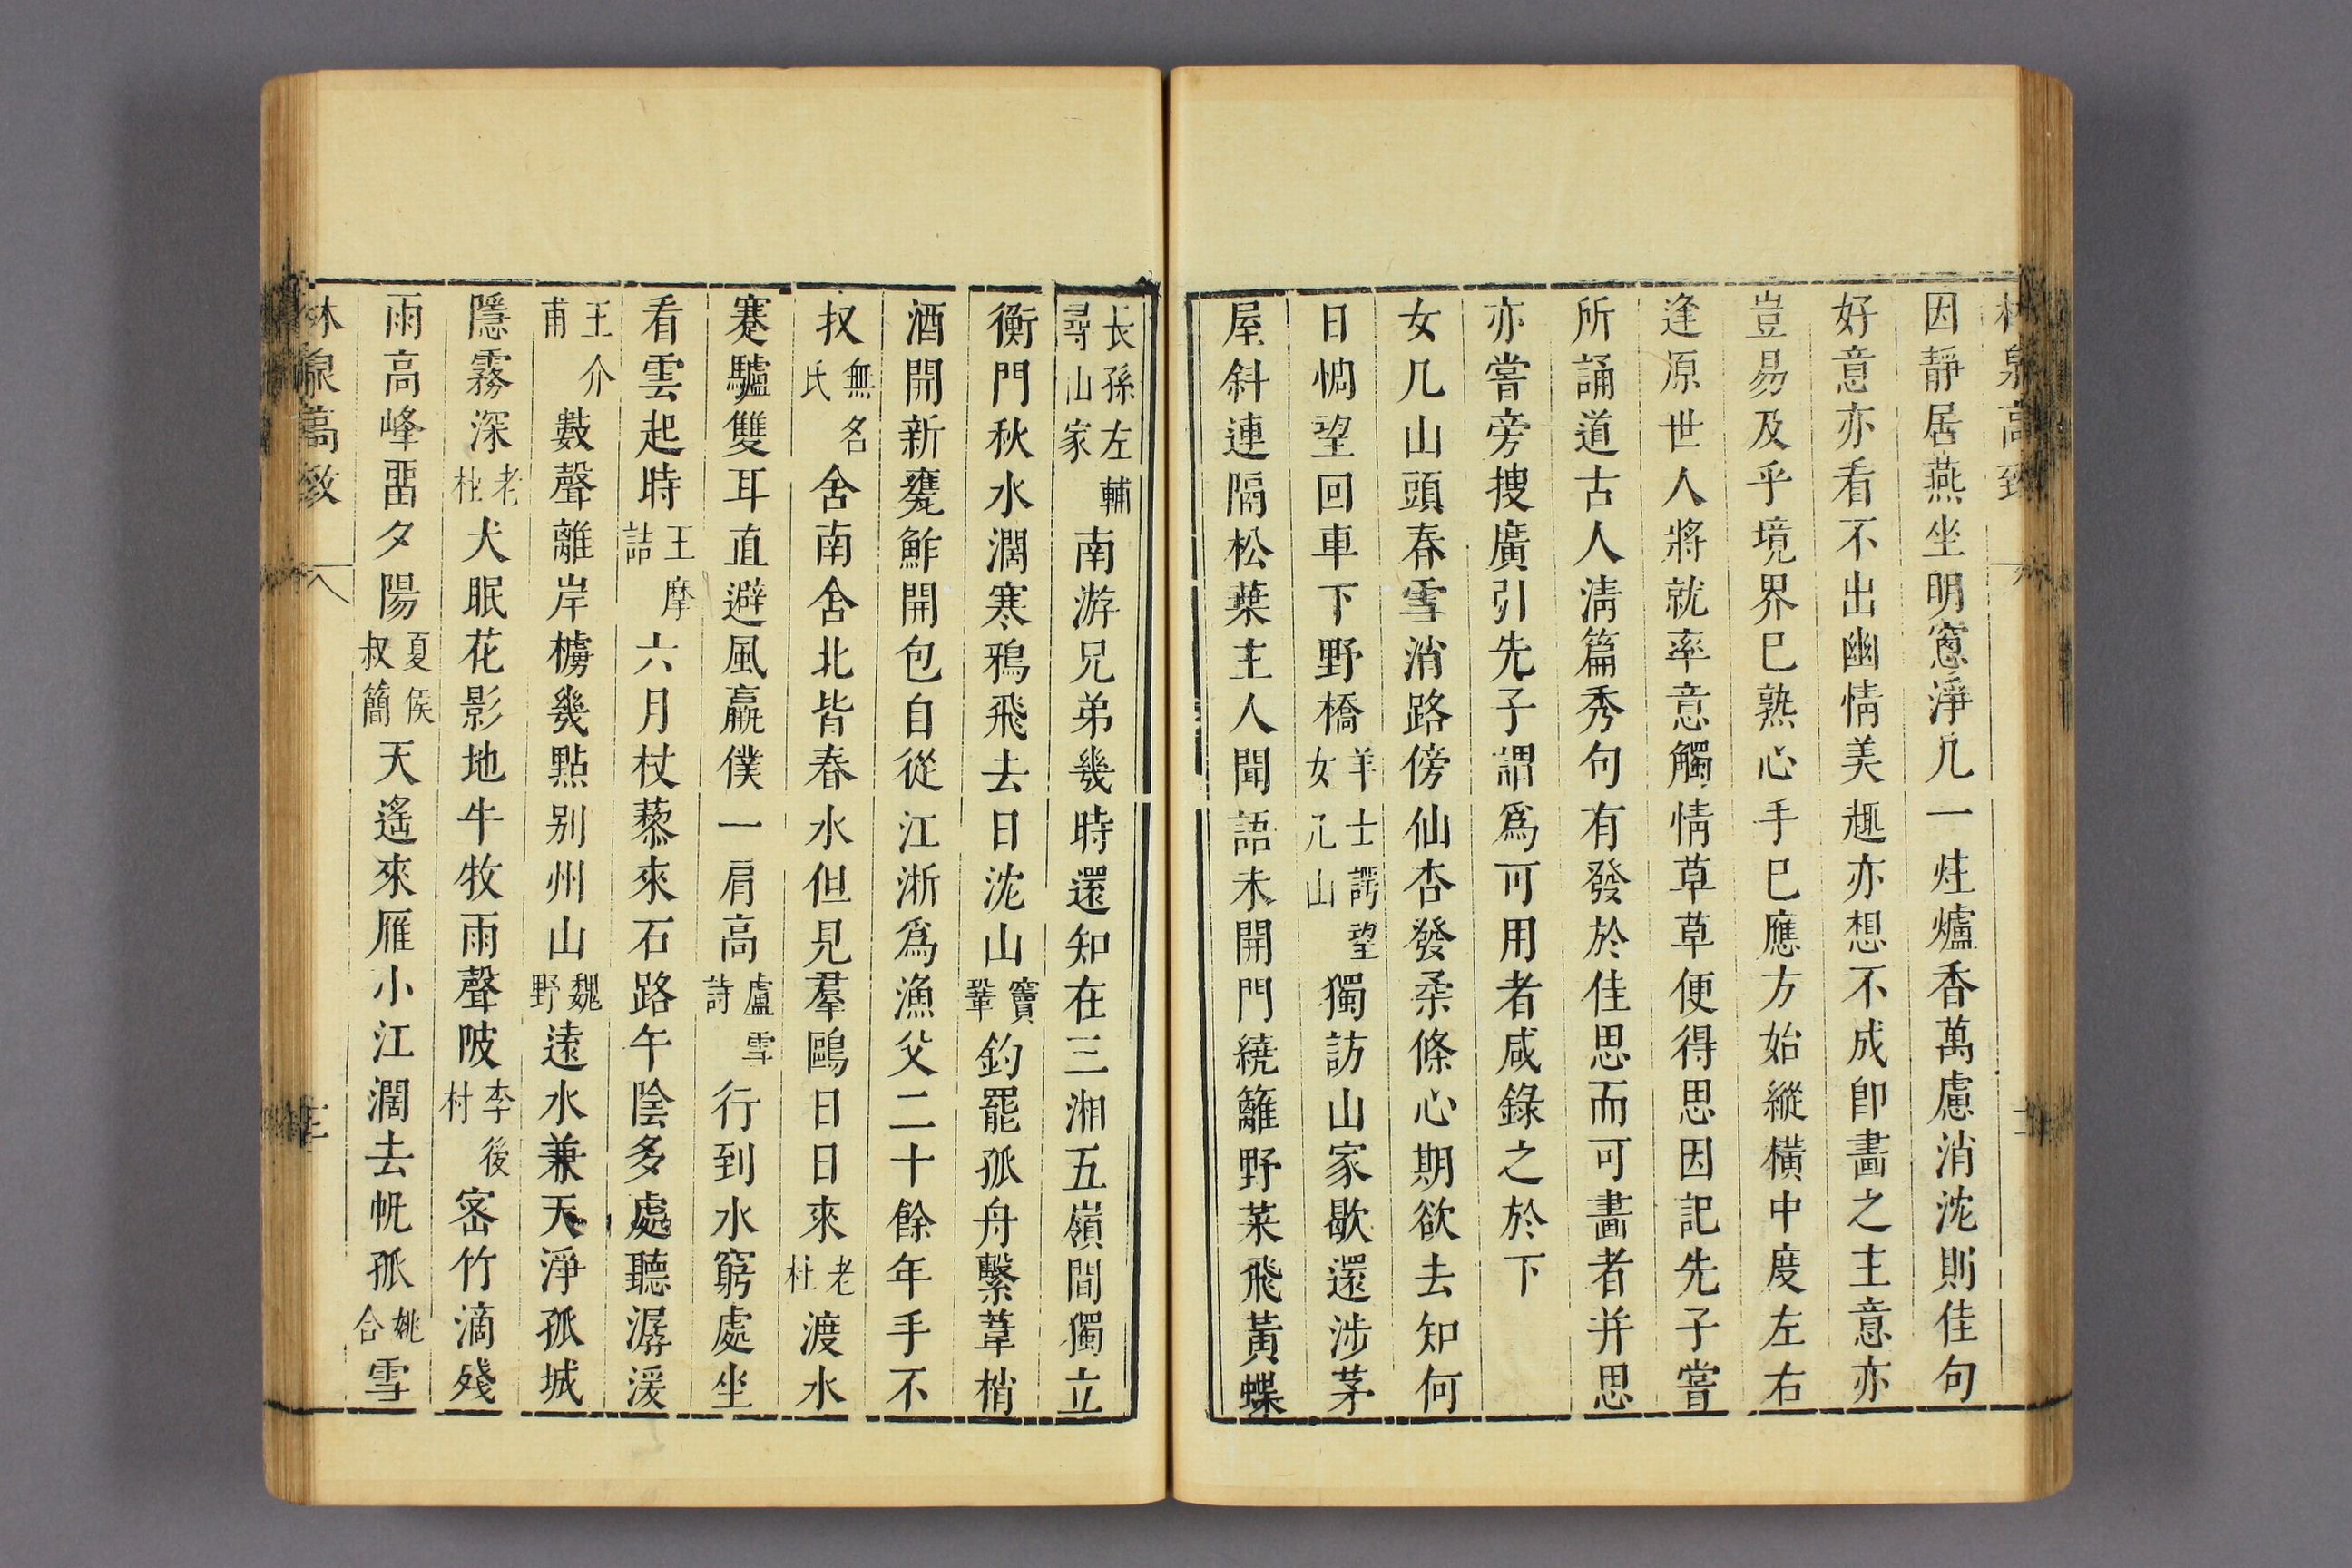 因靜居燕坐明窻淨几一炷爐香萬慮消沈則佳句
好意亦看不出幽情美趣亦想不成卽畫之主意亦
豈易及乎境界巳熟心手巳應方始縱橫中度左右
逢原世人將就率意觸情草草便得思因記先子嘗
所誦道古人淸篇秀句有發於佳思而可畫者并思
亦嘗旁搜廣引先子謂爲可用者咸錄之於下
女几山頭春雪消路傍仙杏發柔條心期欲去知何
日惆望回車下野橋羊士諤望女几山獨訪山家歇還涉茅
屋斜連隔松葉主人聞語未開門繞籬野菜飛黃蝶
長孫左輔尋山家南游兄弟幾時還知在三湘五嶺間獨立
衡門秋水濶寒鴉飛去日沈山竇鞏釣罷孤舟繫葦梢
酒開新甕鮓開包自從江浙爲漁父二十餘年手不
扠無名氏舍南舍北皆春水但見羣鷗日日來老杜渡水
蹇驢雙耳直避風羸僕一肩高盧雪詩行到水窮處坐
看雲起時王摩詰六月杖藜來石路午陰多處聽潺湲
王介甫數聲離岸櫓幾點别州山魏野遠水兼天淨孤城
隱霧深老杜犬眠花影地牛牧雨聲陂李後村密竹滴殘
雨高峰畱夕陽夏侯叔簡天遙來雁小江濶去帆孤姚合雪
林泉高致 八